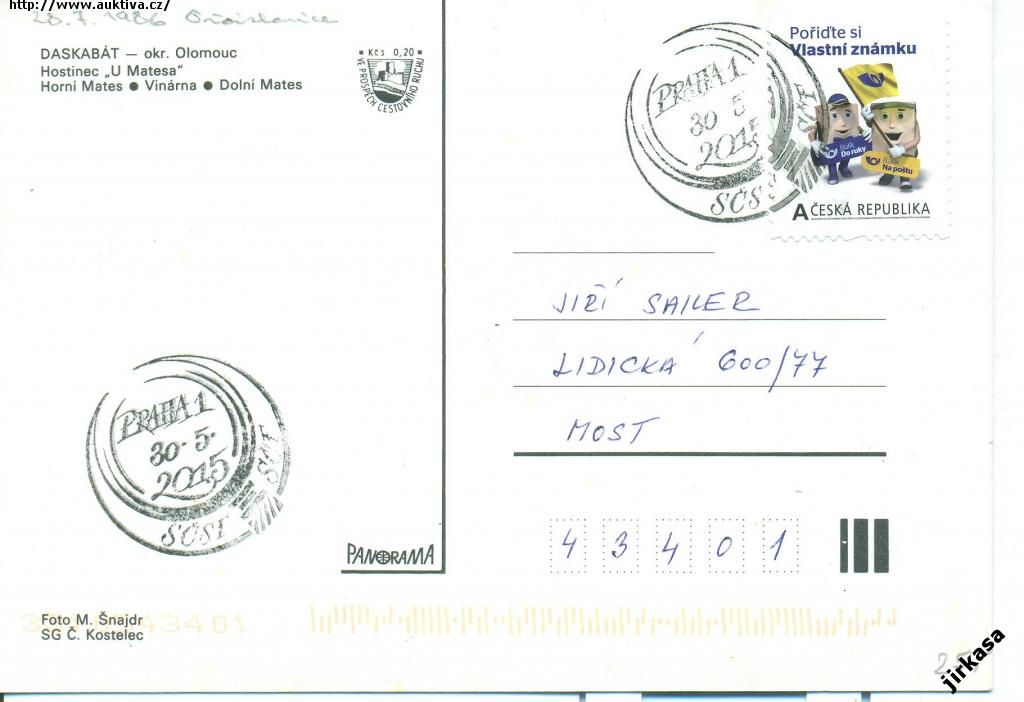 http://www.auktiva.cz/
28.7.1986
DASKABÁT — okr. Olomouc
Hostinec „U Matesa"
Horní Mates ● Vinárna ● Dolní Mates
Kčs 0,20
VE PROSPĚCH CESTOVNÍHO RUCHU
PRAHA 1
30·5·
2015
SČSF
SMF
Pořiďte si
Vlastní známku
Balík
Do ruky
Balík
Na poštu
A ČESKÁ REPUBLIKA
JIŘÍ SAILER
LIDICKÁ 600/77
MOST
4 3 4 0 1
PRAHA 1
30·5·
2015
SČSF
SMF
PANORAMA
Foto M. Šnajdr
SG Č. Kostelec
jirkasa